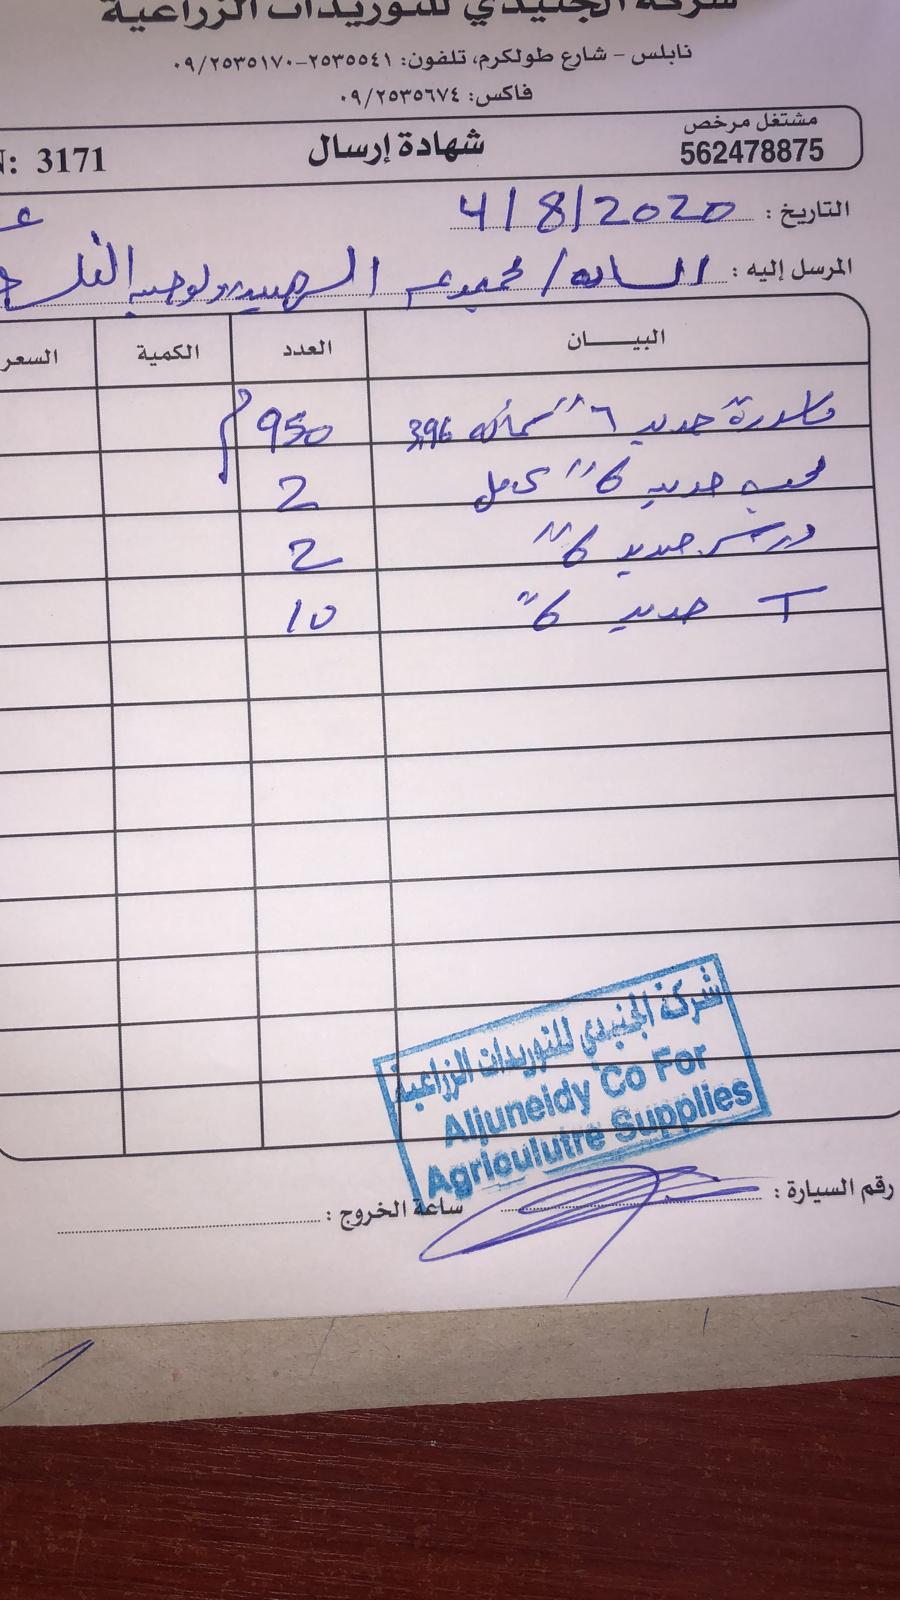 شركة الجنيدي للتوريدات الزراعية
نابلس - شارع طولكرم، تلفون: ٢٥٣٥٥٤١-٠٩/٢٥٣٥١٧٠
فاكس: ٠٩/٢٥٣٥٦٧٤
مشتغل مرخص
562478875
شهادة إرسال
N: 3171
التاريخ : 4/8/2020
المرسل إليه : السادة / مجموعة الهيدرولوجيين
البيـــان العدد الكمية السعر
ماسورة حديد ٦" سماكة 3.96 950 م
محبس حديد 6" كامل 2
حديد 6" 2
T حديد 6" 10
شركة الجنيدي للتوريدات الزراعية
Aljuneidy Co For
Agriculutre Supplies
رقم السيارة : ساعة الخروج :